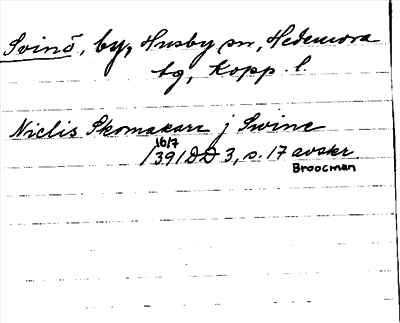 Svinö, by, Husby sn, Hedemora
tg, Kopp. l.
Niclis Skomakare j Swine
16/7
1391 DD 3, s. 17 avskr
Broocman